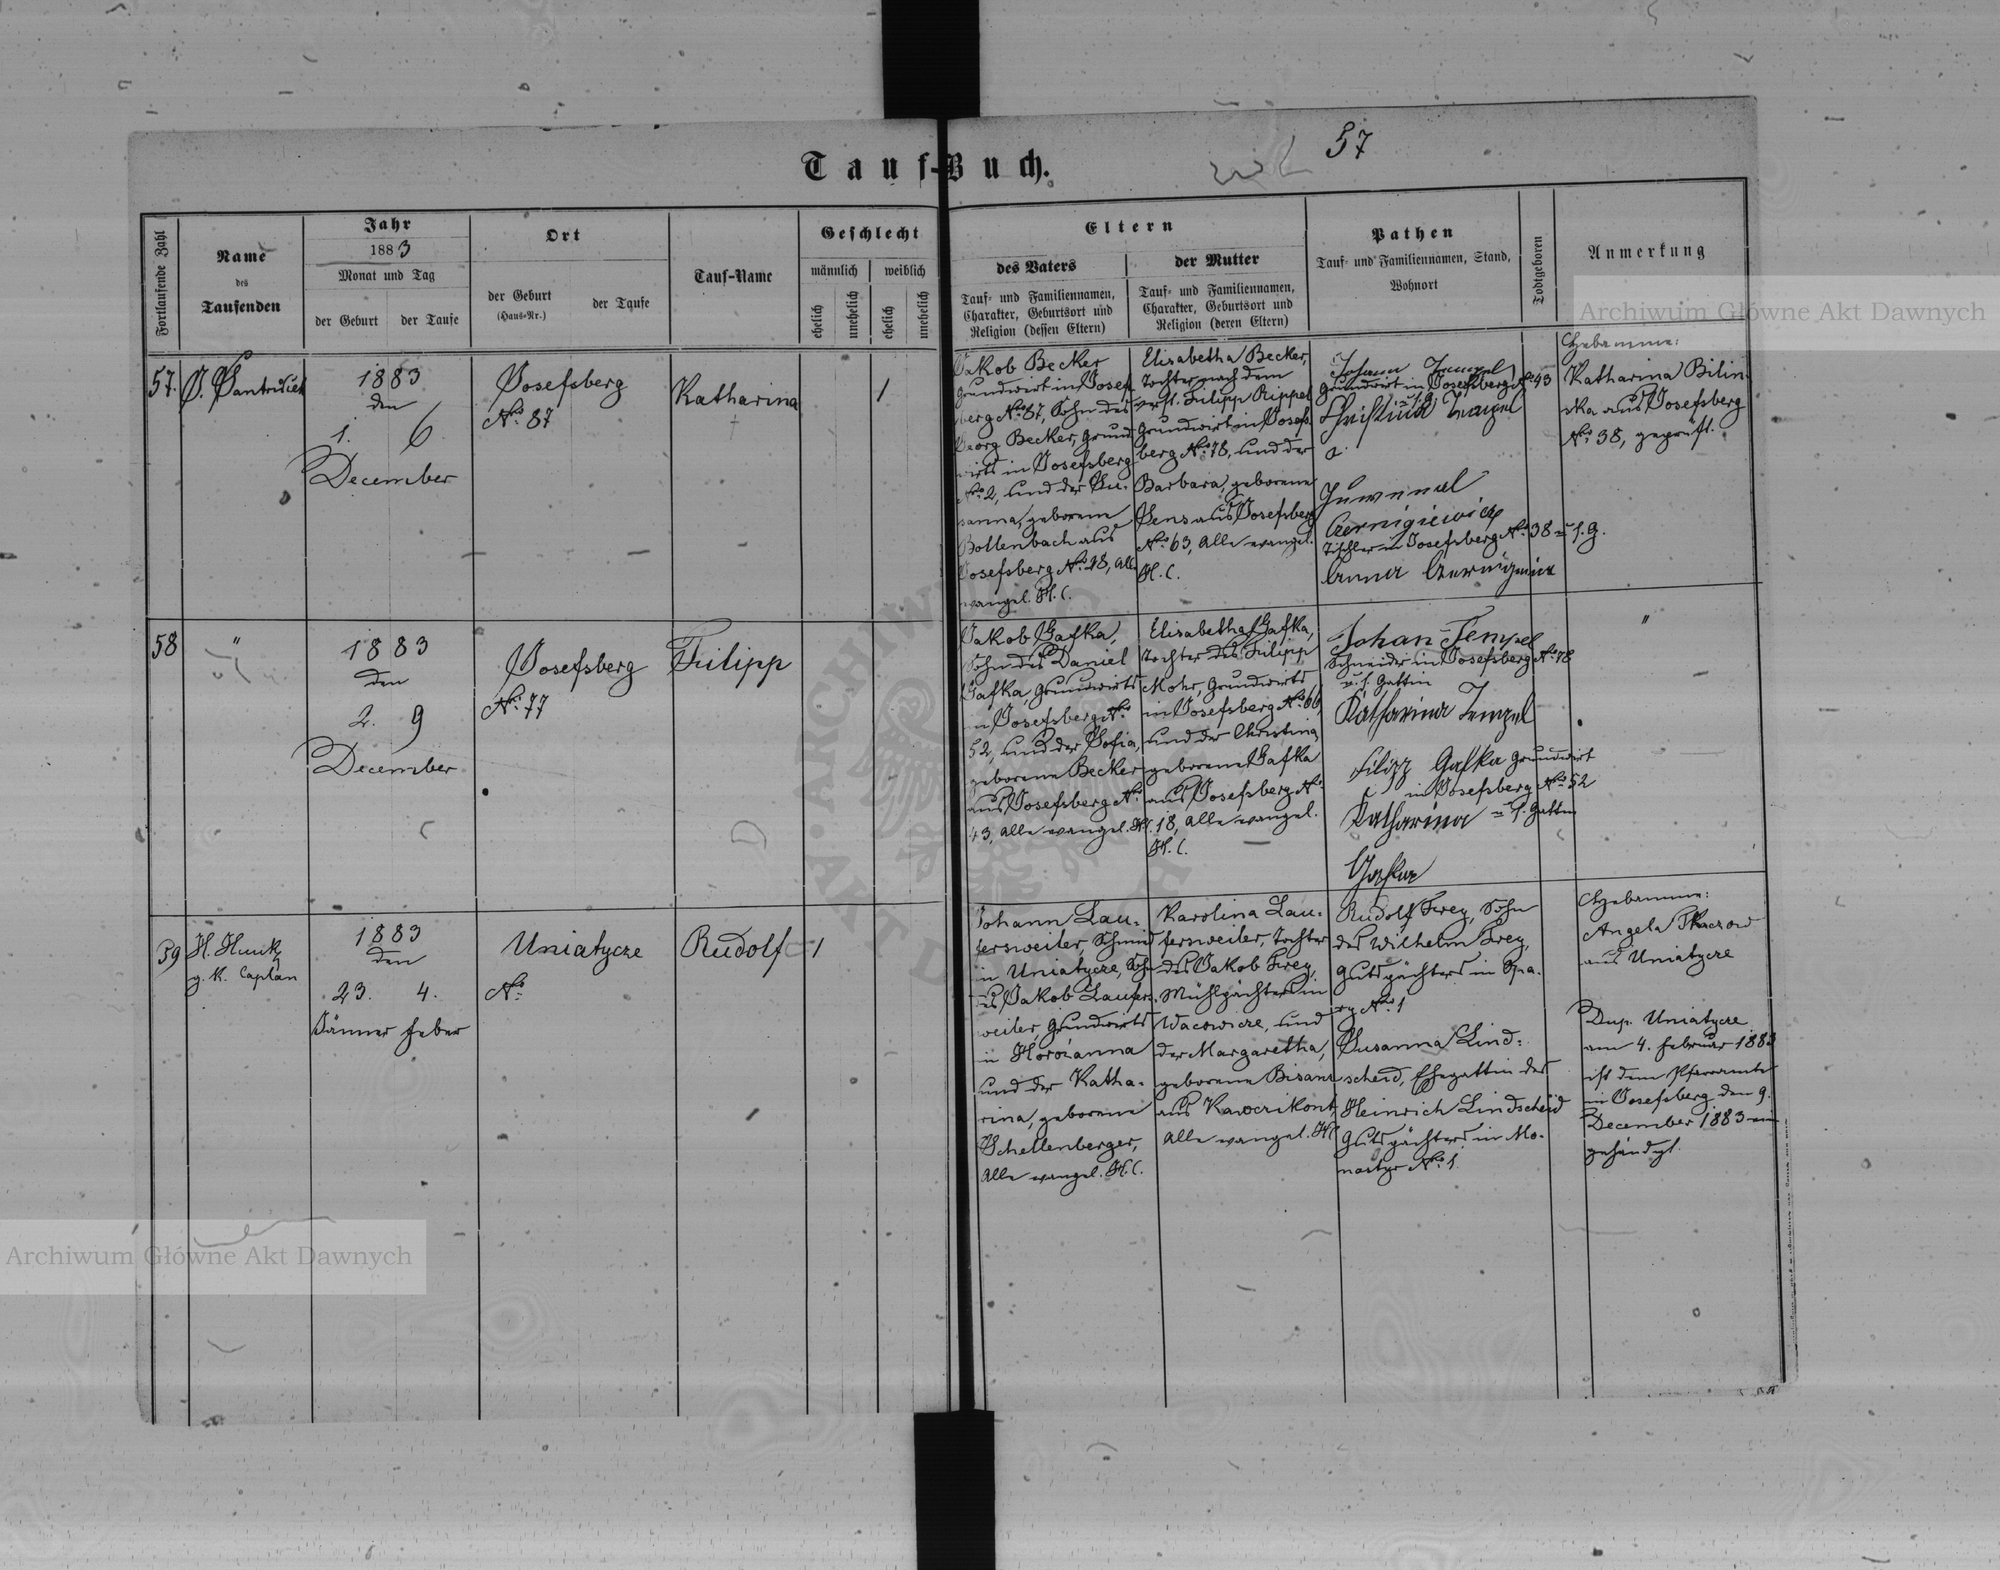 57
Tauf-Buch.
Fortlaufende Zahl
Name
des
Taufenden
Jahr
1883
Monat und Tag
der Geburt
der Taufe
Ort
der Geburt
(Haus-Nr.)
der Taufe
Tauf-Name
Geschlecht
männlich
weiblich
ehelich
unehelich
ehelich
unehelich
Eltern
des Vaters
Tauf- und Familiennamen,
Charakter, Geburtsort und
Religion (dessen Eltern)
der Mutter
Tauf- und Familiennamen,
Charakter, Geburtsort und
Religion (deren Eltern)
Pathen
Tauf- und Familiennamen, Stand,
Wohnort
Todtgeboren
Anmerkung
57.
1883
den
1. 6
December
Josefsberg
No. 87
Katharina
1
Jakob Becker
Grundwirt in Josefs
berg No. 87, Sohn des
Georg Becker, Grund
wirts in Josefsberg
No. 2, und der Su-
sanna, geborene
Bollenbach aus
Josefsberg No. 28, alle
evangel. H. C.
Elisabetha Becker,
Tochter nach dem
verst. Filipp Rippel
Grundwirt in Josefs
berg No. 78, und der
Barbara, geborene
Sens aus Josefsberg
No. 63, alle evangel.
H. C.
Johann Tempel
Grundwirt in Josefsberg No. 43
Christina Tempel
Juwenal
Czernigiewicz
Tischler in Josefsberg No. 38 u. s. G.
Anna Czernigiewicz
Hebamme:
Katharina Bilin
ska aus Josefsberg
No. 38, geprüft.
58
"
1883
den
2. 9
December
Josefsberg
No. 77
Filipp
Jakob Gafka,
Sohn des Daniel
Gafka, Grundwirts
in Josefsberg No.
52, und der Sofia,
geborene Becker
aus Josefsberg No.
43, alle evangel. H. C.
Elisabetha Gafka,
Tochter des Filipp
Mohr, Grundwirts
in Josefsberg No. 66,
und der Christina
geborene Gafka
aus Josefsberg No.
18, alle evangel.
H. C.
Johan Tempel
Schneider in Josefsberg No. 78
u. s. Gattin
Katharina Tempel
Filipp Gafka Grundwirt
in Josefsberg No. 52
Katharina u. s. Gattin
Gafka
"
59
g. k. Caplan
1883
den
23. 4.
Jänner Feber
Uniatycze
No.
Rudolf
1
Johann Lau-
fersweiler, Schmied
in Uniatycze, Sohn
des Jakob Laufers-
weiler Grundwirts
in Horożanna
und der Katha-
rina, geborene
Schellenberger,
alle evangel. H. C.
Karolina Lau-
fersweiler, Tochter
des Jakob Frey,
Mühlpächters in
Wacowicze, und
der Margaretha,
geborene Bisanz
aus Kawczikont,
alle evangel. H. C.
Rudolf Frey, Sohn
des Wilhelm Frey,
Gutspächters in Spa-
ry No. 1
Susanna Lind-
scheid, Ehegattin des
Heinrich Lindscheid
Gutspächters in Mo-
nastyr No. 1.
Hebamme:
Angela Tkaczow
aus Uniatycze
Dup. Uniatycze
am 4. Februar 1883
ist dem Pfarramte
in Josefsberg den 9.
December 1883 ein
gehändigt.
Archiwum Główne Akt Dawnych
Archiwum Główne Akt Dawnych